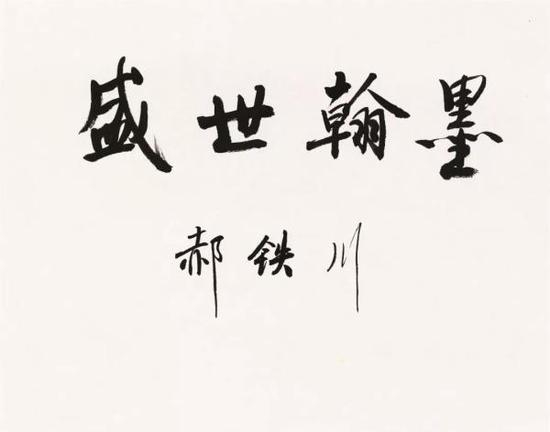 盛世翰墨
郝铁川